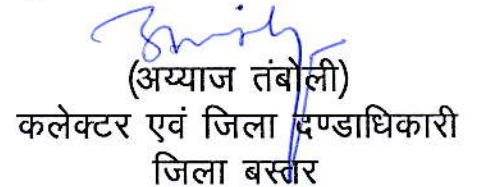 (अय्याज तंबोली)
कलेक्टर एवं जिला दण्डाधिकारी
जिला बस्तर